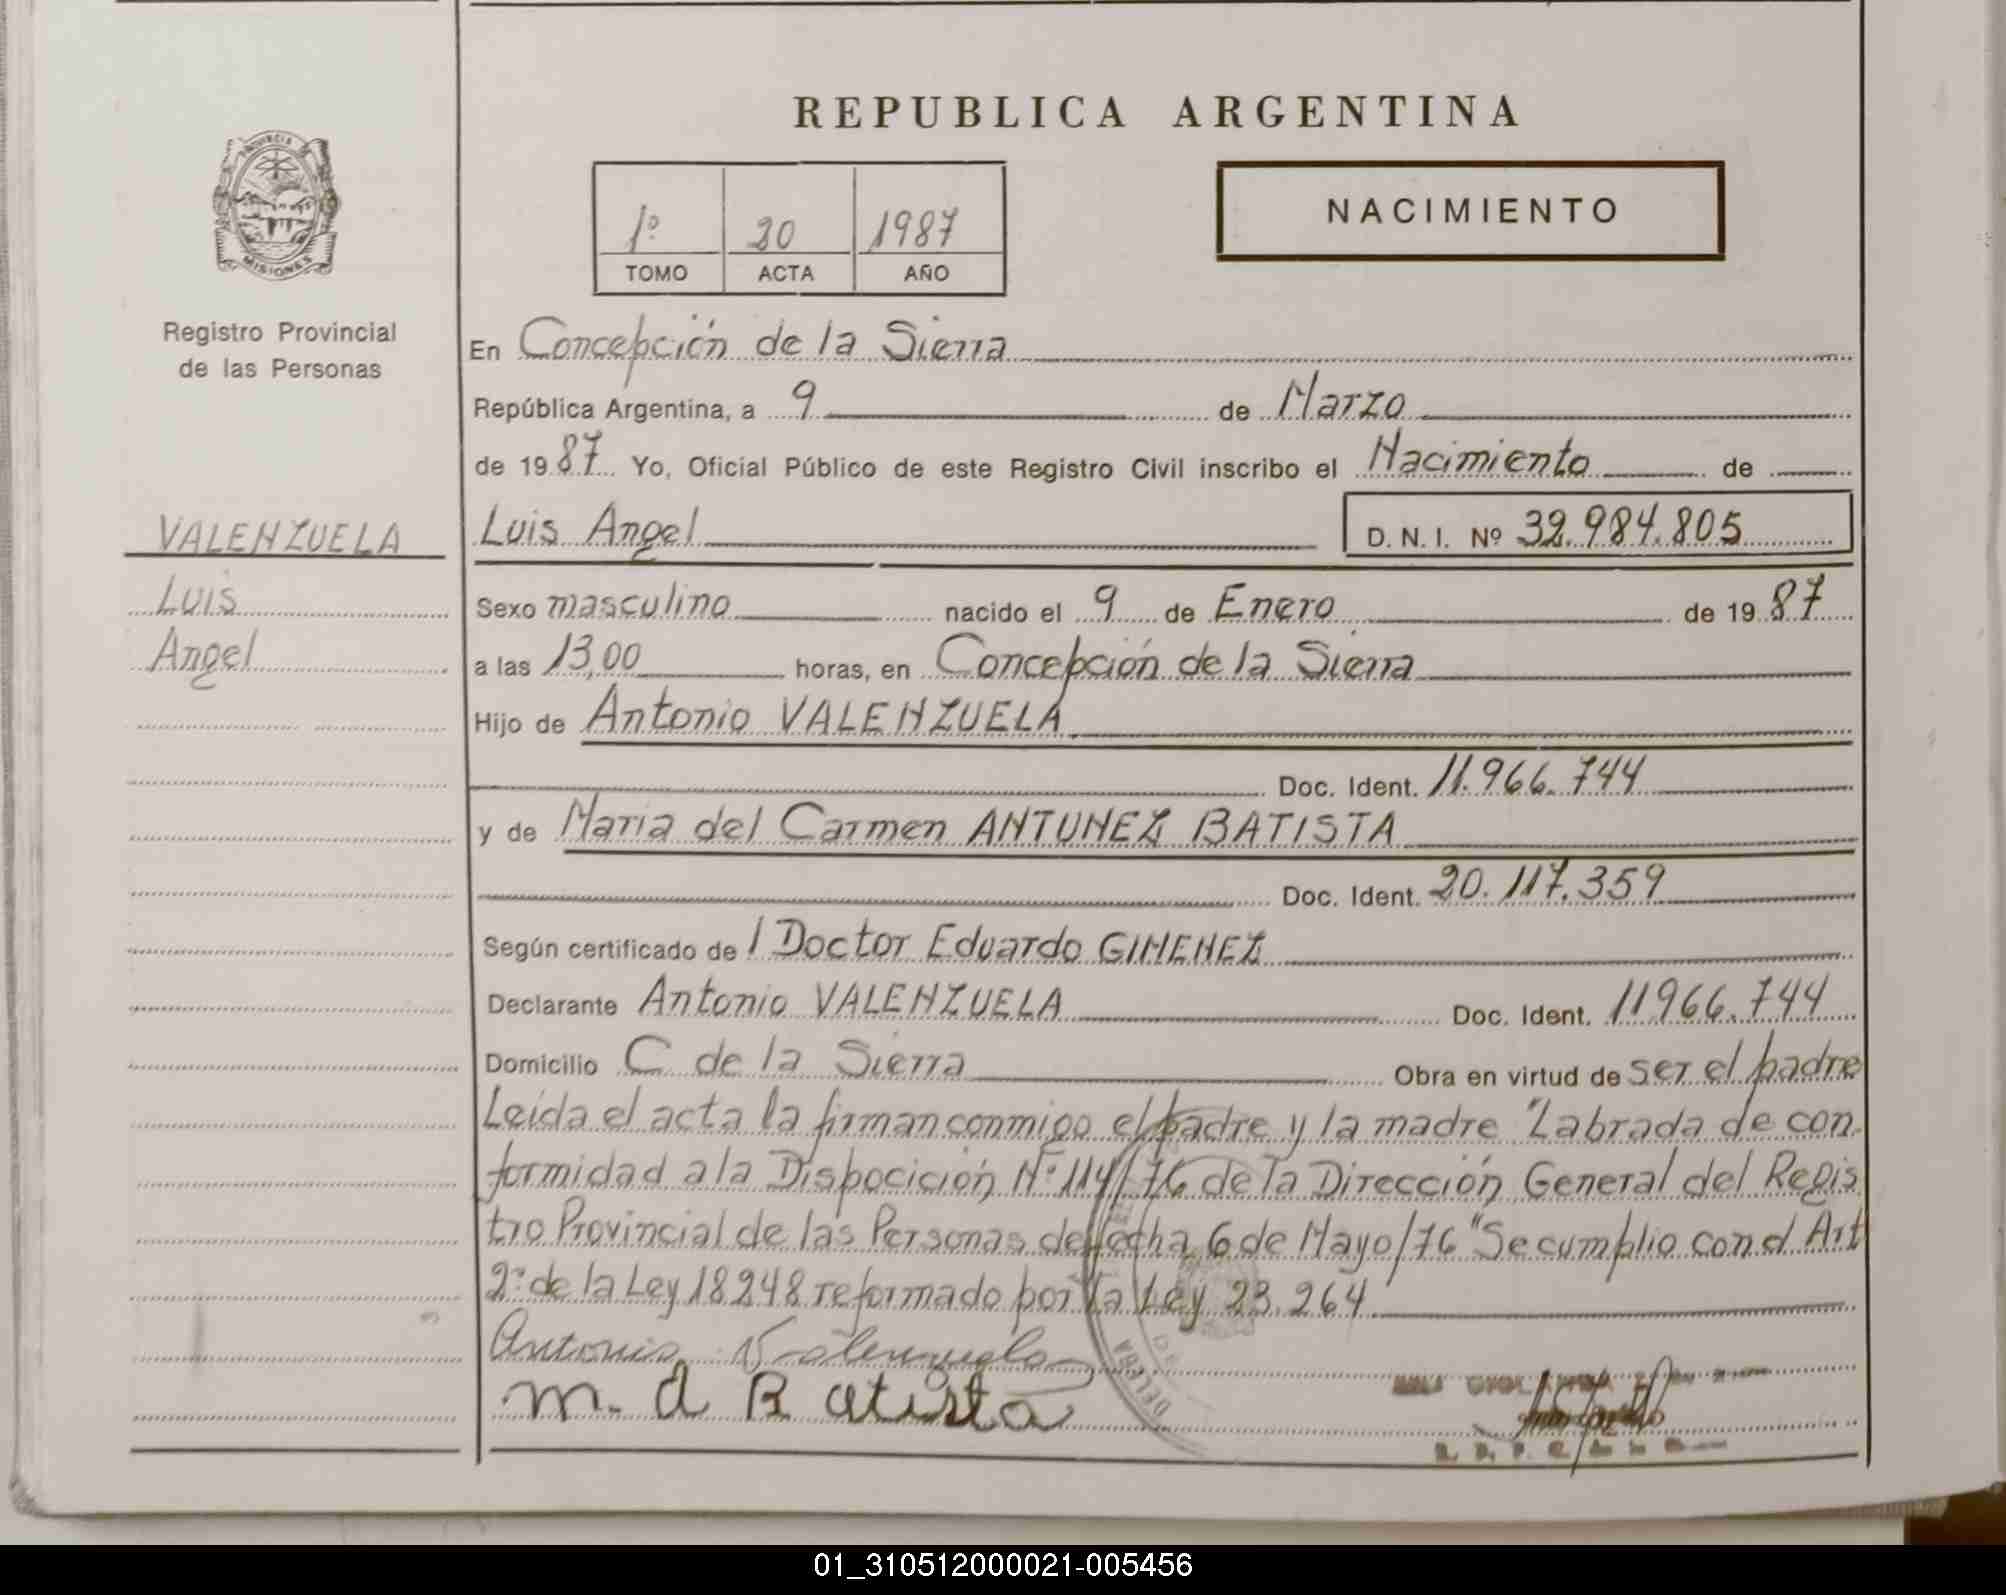 REPUBLICA ARGENTINA
PROVINCIA DE
MISIONES
Registro Provincial
de las Personas
1º 20 1987
TOMO ACTA AÑO
NACIMIENTO
En Concepción de la Sierra
República Argentina, a 9 de Marzo
de 1987 Yo, Oficial Público de este Registro Civil inscribo el Nacimiento de
VALENZUELA
Luis
Angel
Luis Angel D. N. I. Nº 32.984.805
Sexo masculino nacido el 9 de Enero de 1987
a las 13,00 horas, en Concepción de la Sierra
Hijo de Antonio VALENZUELA
Doc. Ident. 11.966.744
y de Maria del Carmen ANTUNEZ BATISTA
Doc. Ident. 20.117.359
Según certificado de l Doctor Eduardo GIMENEZ
Declarante Antonio VALENZUELA Doc. Ident. 11966.744
Domicilio C de la Sierra Obra en virtud de ser el padre
Leida el acta la firman conmigo el padre y la madre "Labrada de con-
formidad a la Dispocición Nº 114/76 de la Dirección General del Regis
tro Provincial de las Personas de fecha 6 de Mayo/76 "Se cumplio con el Art
2º de la Ley 18248 reformado por la Ley 23.264
Antonio Valenzuela
m. d Batista
01_310512000021-005456